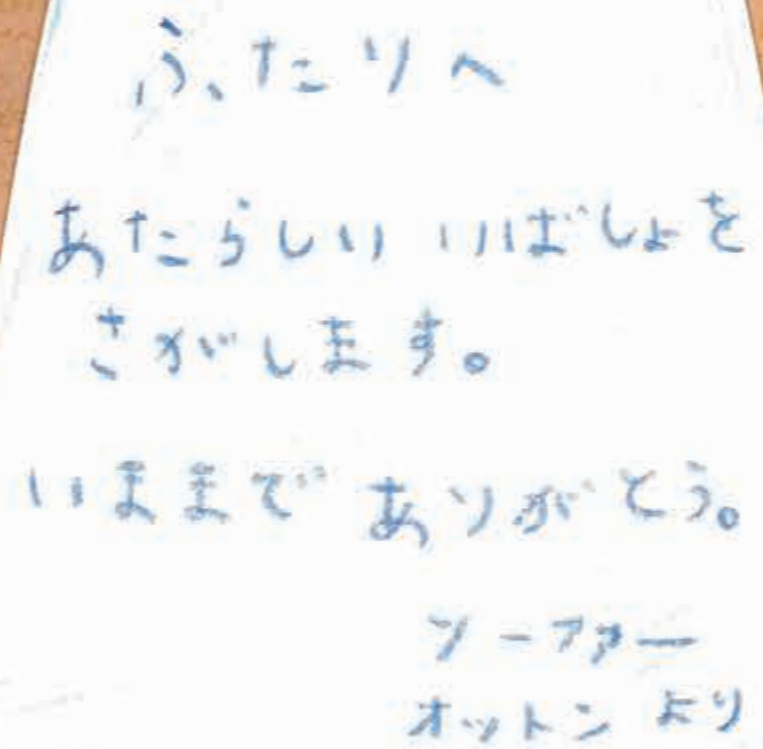 ふたりへ
あたらしい いばしょを
さがします。
いままで ありがとう。
ソーファー
オットン より